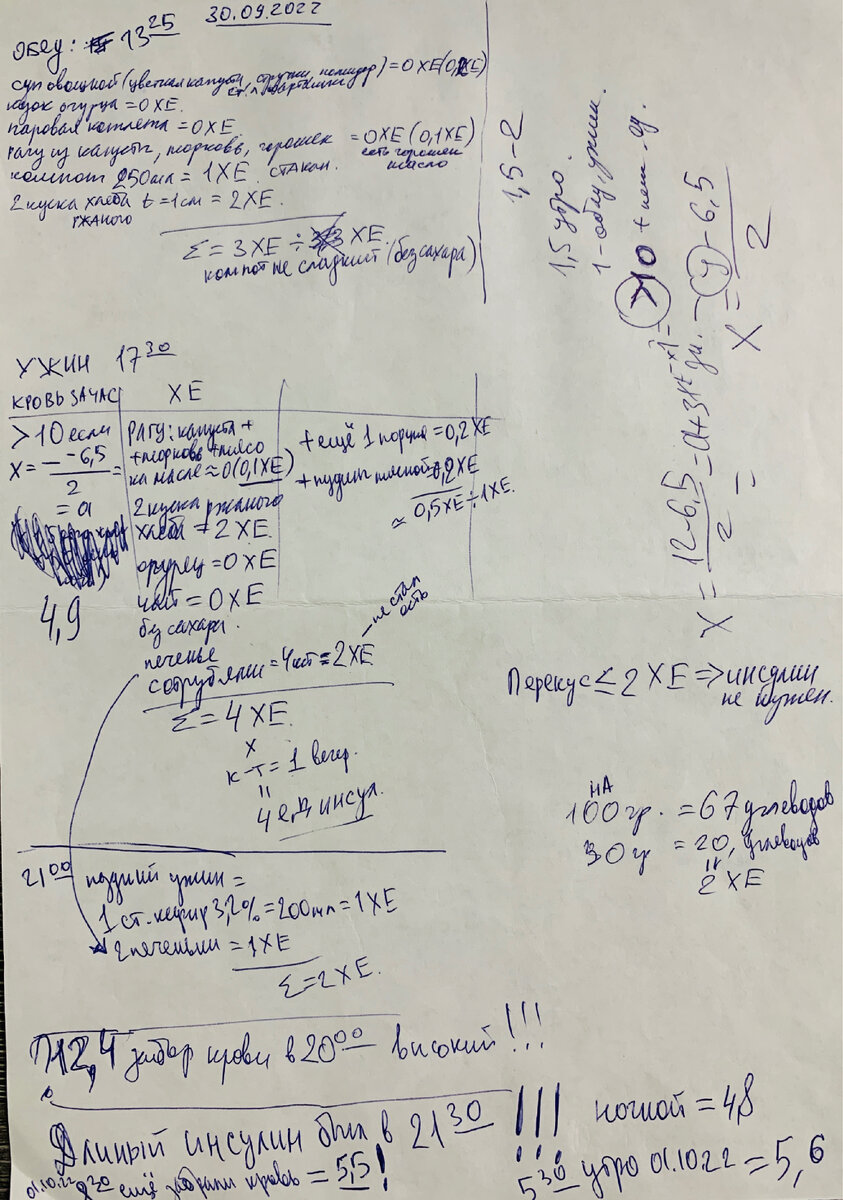 30.09.2022
ОБЕД: 13 25
суп овощной (цветная капуста, стручки, помидор) = 0 ХЕ (0,2ХЕ)
кусок огурца = 0 ХЕ.
паровая котлета = 0 ХЕ
рагу из капусты, морковь, горошек = 0 ХЕ (0,1 ХЕ)
есть горошек
масло
компот 250 мл = 1 ХЕ стакан.
2 куска хлеба t = 1 см = 2 ХЕ.
РЖАНОГО
Σ = 3 ХЕ ÷ ХЕ.
компот не сладкий (без сахара)
1,5 – 2
1,5 утро.
1 – обед, ужин.
>10
X = (12 - 6,5)/2 =
X = - 6,5 / 2
УЖИН 17 30
КРОВЬ ЗА ЧАС
ХЕ
>10 если
X = – -6,5 / 2 =
= a
4,9
РАГУ: капуста +
+ морковь + мясо
на масле ≈ 0 (0,1 ХЕ)
2 куска ржаного
хлеба = 2 ХЕ.
огурец = 0 ХЕ
чай = 0 ХЕ
без сахара.
печенье
с отрубями = 4 шт = 2 ХЕ
– не стал есть
Σ = 4 ХЕ.
X
к-т = 1 вечер.
||
4 ед инсул.
+ ещё 1 порция = 0,2 ХЕ
+ пудинг мясной = 0,2 ХЕ
≈ 0,5 ХЕ ÷ 1 ХЕ.
Перекус ≤ 2 ХЕ => инсулин
не нужен.
НА
100 гр. = 67 углеводов
30 гр = 20, углеводов
||
2 ХЕ
21 00 поздний ужин =
1 ст. кефир 3,2% = 200 мл = 1 ХЕ
2 печеньки = 1 ХЕ
Σ = 2 ХЕ.
12,4 забор крови в 20 00 высокий!!!
Длиный инсулин был в 21 30 !!!
ночной = 4,8
01.10.22 ещё забрали кровь = 5,5!
5 30 утро 01.10.22 = 5,6